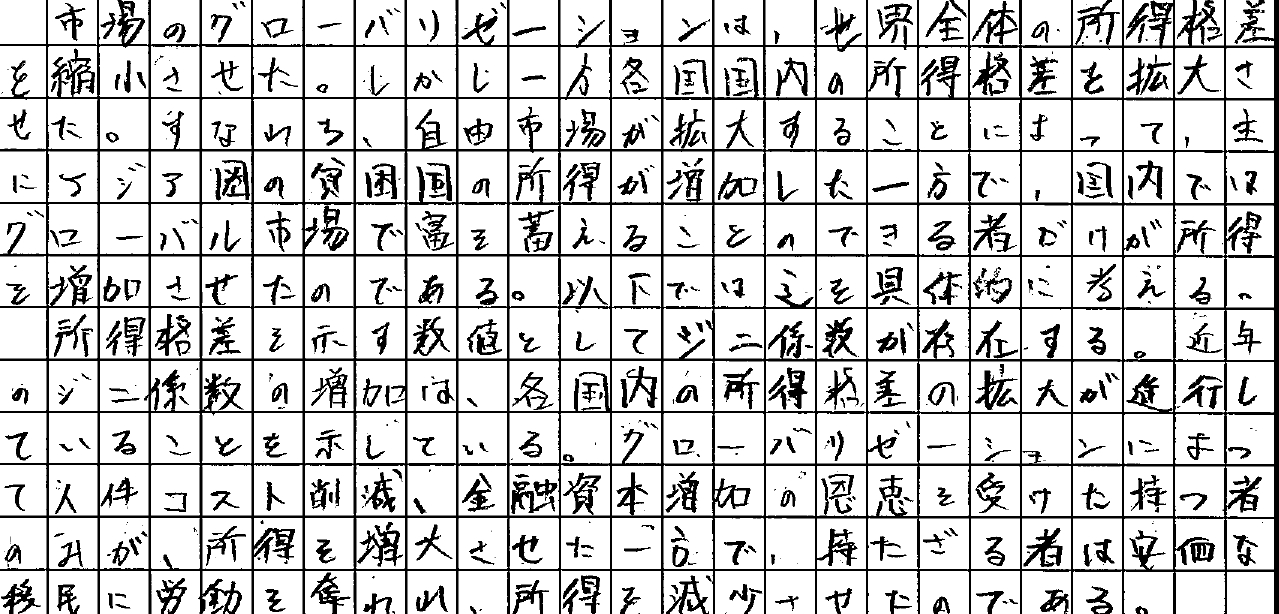 市場のグローバリゼーションは，世界全体の所得格差
を縮小させた。しかし一方各国国内の所得格差を拡大さ
せた。すなわち、自由市場が拡大することによって，主
にアジア圏の貧困国の所得が増加した一方で，国内では
グローバル市場で富を蓄えることのできる者だけが所得
を増加させたのである。以下では之を具体的に考える。
所得格差を示す数値としてジニ係数が存在する。近年
のジニ係数の増加は、各国内の所得格差の拡大が進行し
ていることを示している。グローバリゼーションによっ
て人件コスト削減、金融資本増加の恩恵を受けた持つ者
のみが、所得を増大させた一方で，持たざる者は安価な
移民に労働を奪われ、所得を減少させたのである。